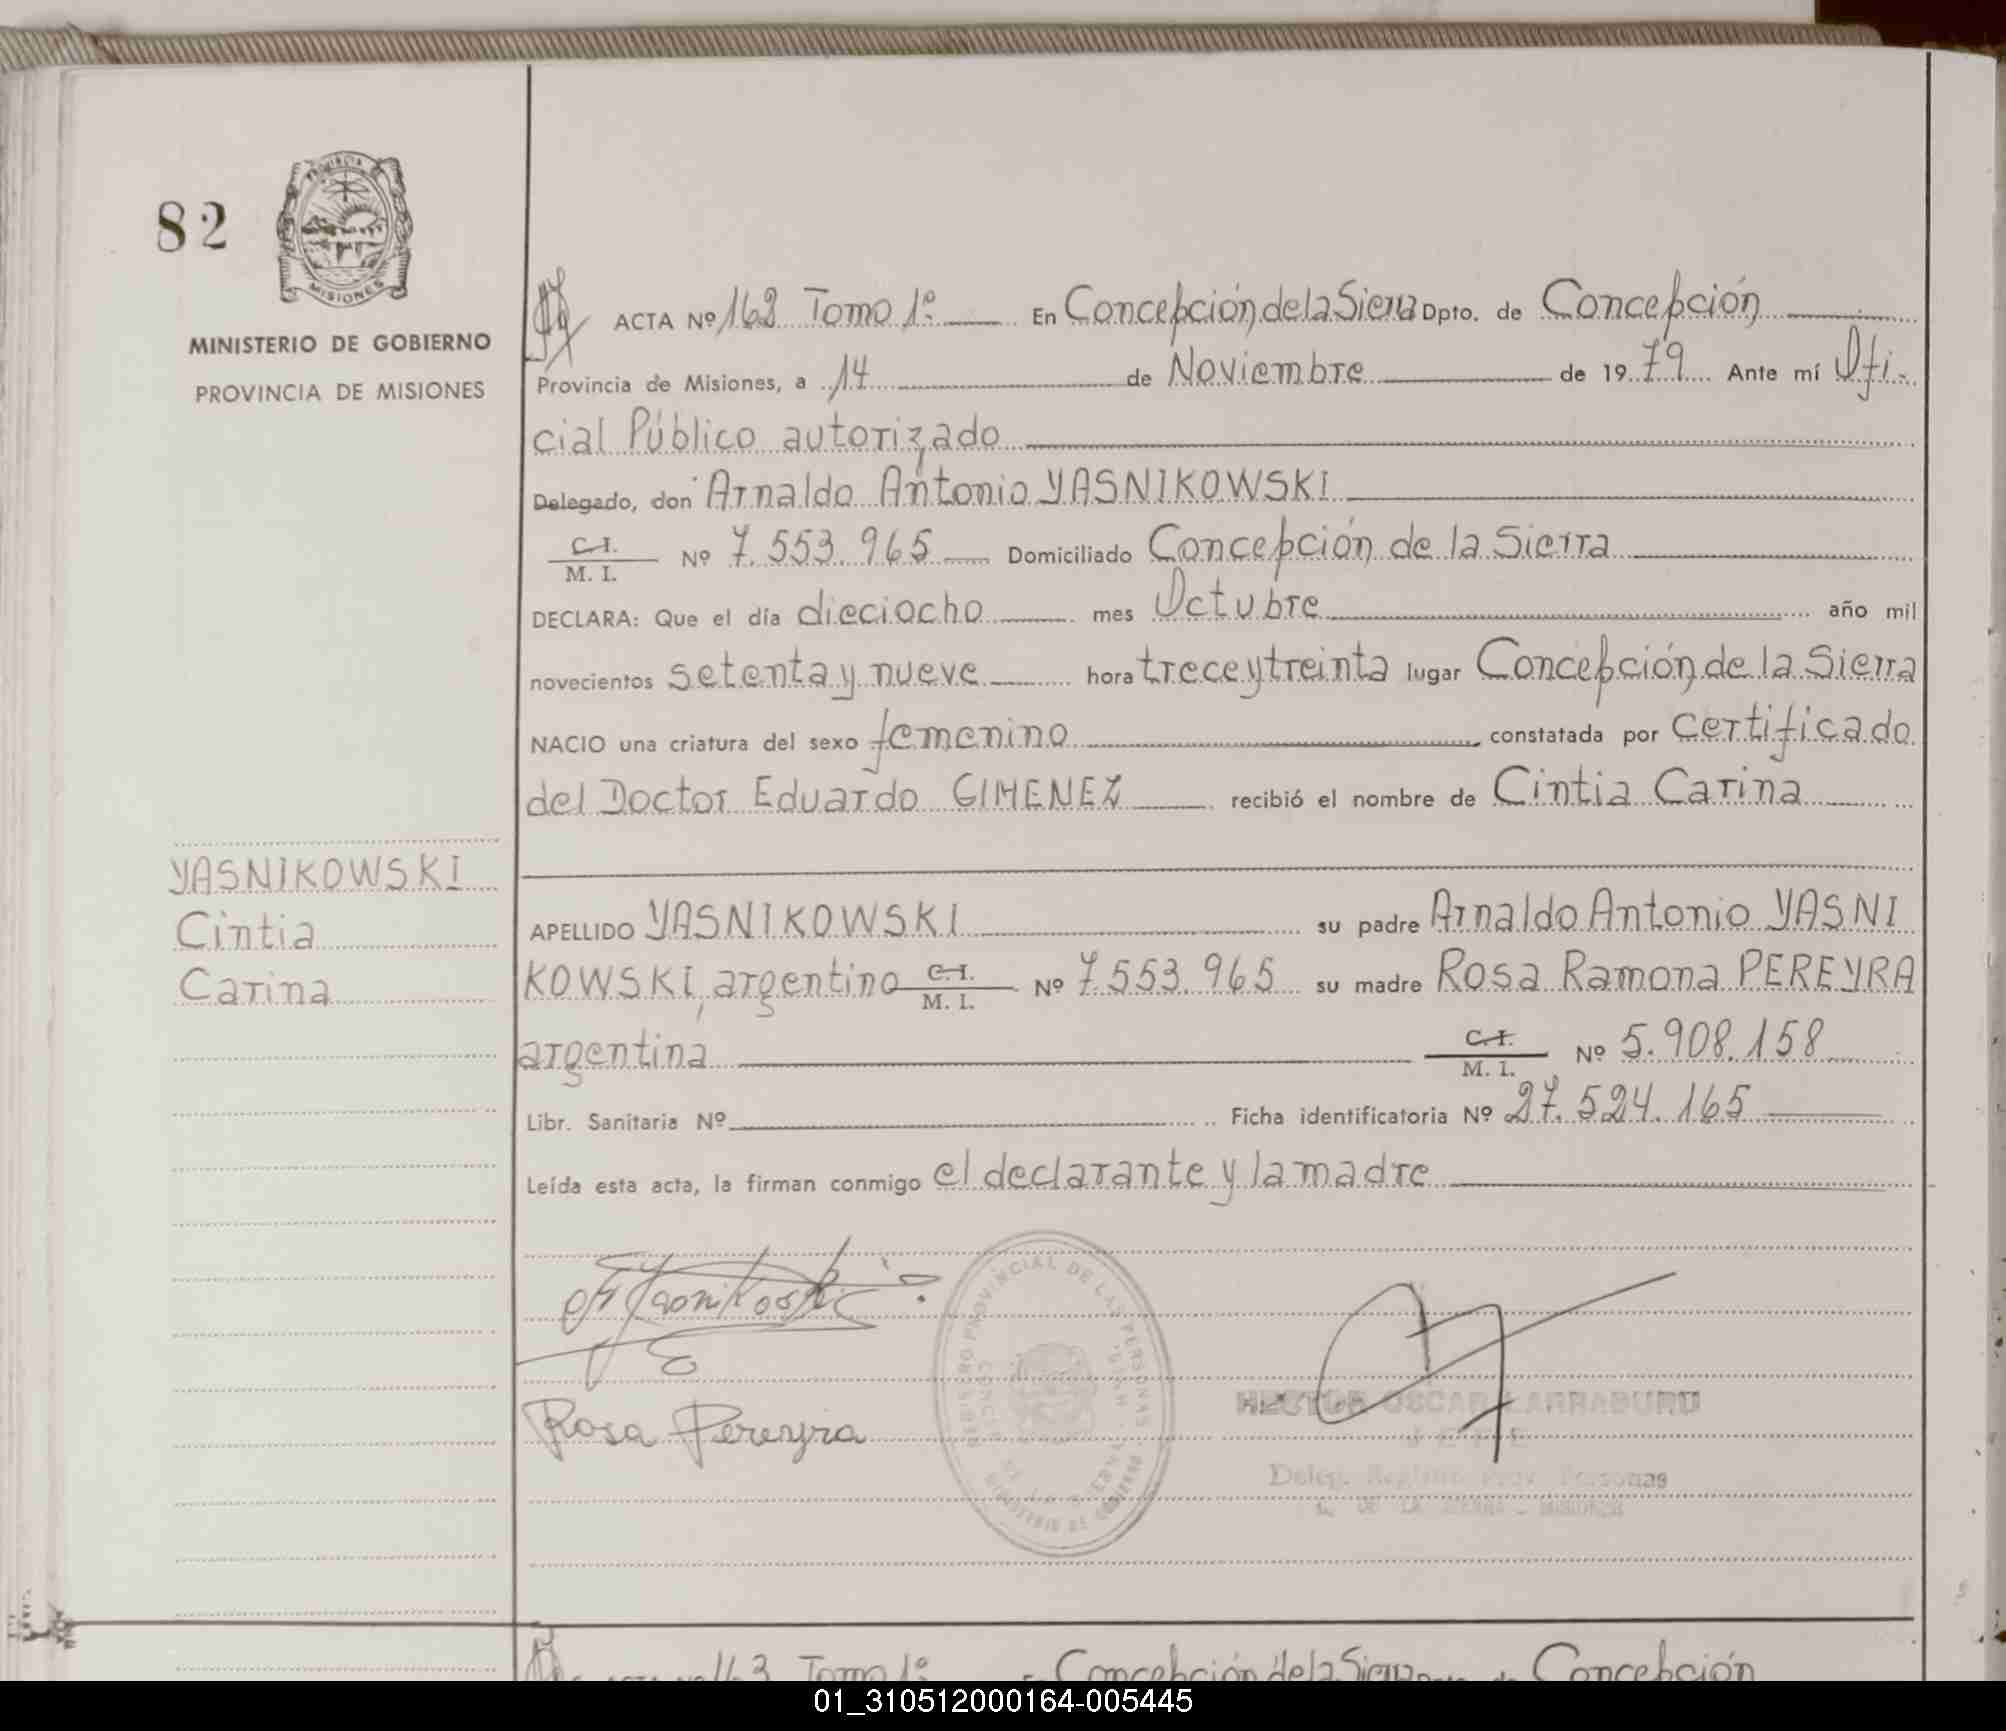 82
PROVINCIA
MISIONES
MINISTERIO DE GOBIERNO
PROVINCIA DE MISIONES
ACTA Nº 162 Tomo 1º En Concepción de la Sierra Dpto. de Concepción
Provincia de Misiones, a 14 de Noviembre de 1979 Ante mí Ofi-
cial Público autorizado
Delegado, don Arnaldo Antonio YASNIKOWSKI
C. I.
M. I. Nº 7.553.965 Domiciliado Concepción de la Sierra
DECLARA: Que el día dieciocho mes Octubre año mil
novecientos setenta y nueve hora trece y treinta lugar Concepción de la Sierra
NACIO una criatura del sexo femenino constatada por certificado
del Doctor Eduardo GIMENEZ recibió el nombre de Cintia Carina
YASNIKOWSKI
Cintia
Carina
APELLIDO YASNIKOWSKI su padre Arnaldo Antonio YASNI
KOWSKI, argentino C. I. M. I. Nº 7.553.965 su madre Rosa Ramona PEREYRA
argentina C. I. M. I. Nº 5.908.158
Libr. Sanitaria Nº Ficha identificatoria Nº 27.524.165
Leída esta acta, la firman conmigo el declarante y la madre
REGISTRO PROVINCIAL DE LAS PERSONAS
MINISTERIO DE GOBIERNO
Rosa Pereyra
HECTOR OSCAR LARRABURU
JEFE
Deleg. Registro Prov. Personas
C. DE LA SIERRA - MISIONES
ACTA Nº 163 Tomo 1º En Concepción de la Sierra Dpto. de Concepción
01_310512000164-005445